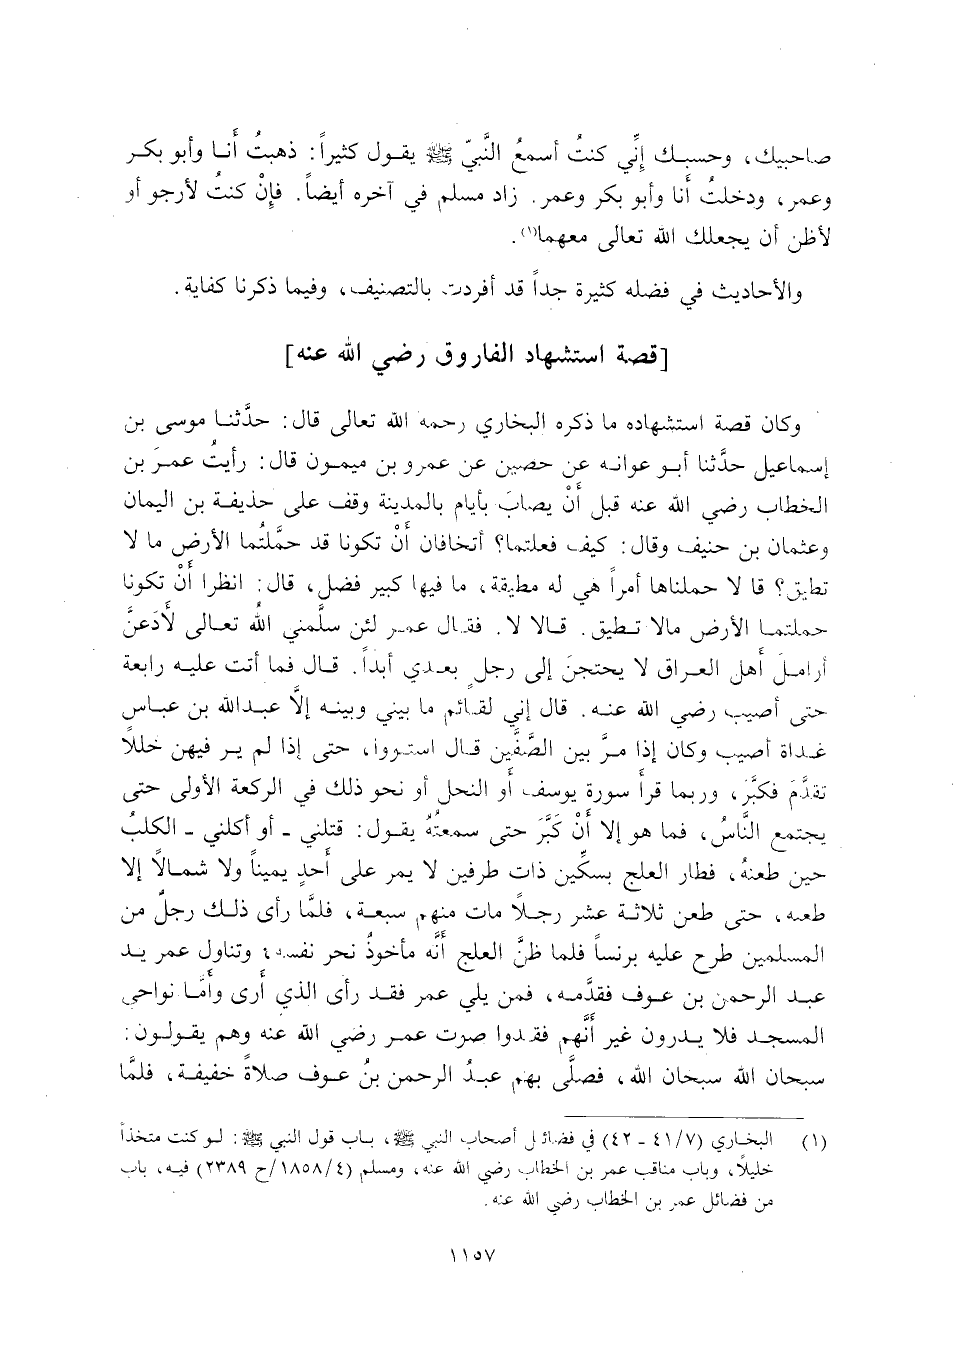 صاحبيك، وحسبك إنِّي كنتُ أسمعُ النَّبيّ ﷺ يقول كثيراً: ذهبتُ أنا وأبو بكر
وعمر، ودخلتُ أنا وأبو بكر وعمر. زاد مسلم في آخره أيضاً. فإنْ كنتُ لأرجو أو
لأظن أن يجعلك الله تعالى معهما(١).
والأحاديث في فضله كثيرة جداً قد أفردت بالتصنيف، وفيما ذكرنا كفاية.
[قصة استشهاد الفاروق رضي الله عنه]
وكان قصة استشهاده ما ذكره البخاري رحمه الله تعالى قال: حدَّثنا موسى بن
إسماعيل حدَّثنا أبو عوانه عن حصين عن عمرو بن ميمون قال: رأيتُ عمرَ بن
الخطاب رضي الله عنه قبل أنْ يصابَ بأيام بالمدينة وقف على حذيفة بن اليمان
وعثمان بن حنيف وقال: كيف فعلتما؟ أتخافان أنْ تكونا قد حمَّلتُما الأرض ما لا
تطيق؟ قا لا حملناها أمراً هي له مطيقة، ما فيها كبير فضل، قال: انظرا أنْ تكونا
حملتما الأرض مالا تطيق. قالا لا. فقال عمر لئن سلَّمني اللهُ تعالى لأَدَعنَّ
أراملَ أهل العراق لا يحتجنَ إلى رجلٍ بعدي أبداً. قال فما أتت عليه رابعة
حتى أصيب رضي الله عنه. قال إني لقائم ما بيني وبينه إلَّا عبدالله بن عباس
غداة أصيب وكان إذا مرَّ بين الصَّفَّين قال استووا، حتى إذا لم ير فيهن خللاً
تقدَّمَ فكبَّرَ، وربما قرأ سورة يوسف أو النحل أو نحو ذلك في الركعة الأولى حتى
يجتمع النَّاسُ، فما هو إلا أنْ كَبَّرَ حتى سمعتهُ يقول: قتلني - أو أكلني - الكلبُ
حين طعنهُ، فطار العلج بسكِّين ذات طرفين لا يمر على أحدٍ يميناً ولا شمالاً إلا
طعنه، حتى طعن ثلاثة عشر رجلاً مات منهم سبعة، فلمَّا رأى ذلك رجلٌ من
المسلمين طرح عليه برنساً فلما ظنَّ العلج أنَّه مأخوذٌ نحر نفسه، وتناول عمر يد
عبد الرحمن بن عوف فقدَّمه، فمن يلي عمر فقد رأى الذي أرى وأمَّا نواحي
المسجد فلا يدرون غير أنَّهم فقدوا صوت عمر رضي الله عنه وهم يقولون:
سبحان الله سبحان الله، فصلَّى بهم عبدُ الرحمن بنُ عوف صلاةً خفيفة، فلمَّا
(١) البخاري (٤١/٧ - ٤٢) في فضائل أصحاب النبي ﷺ، باب قول النبي ﷺ: لو كنت متخذاً
خليلاً، وباب مناقب عمر بن الخطاب رضي الله عنه، ومسلم (١٨٥٨/٤/ح ٢٣٨٩) فيه، باب
من فضائل عمر بن الخطاب رضي الله عنه.
١١٥٧